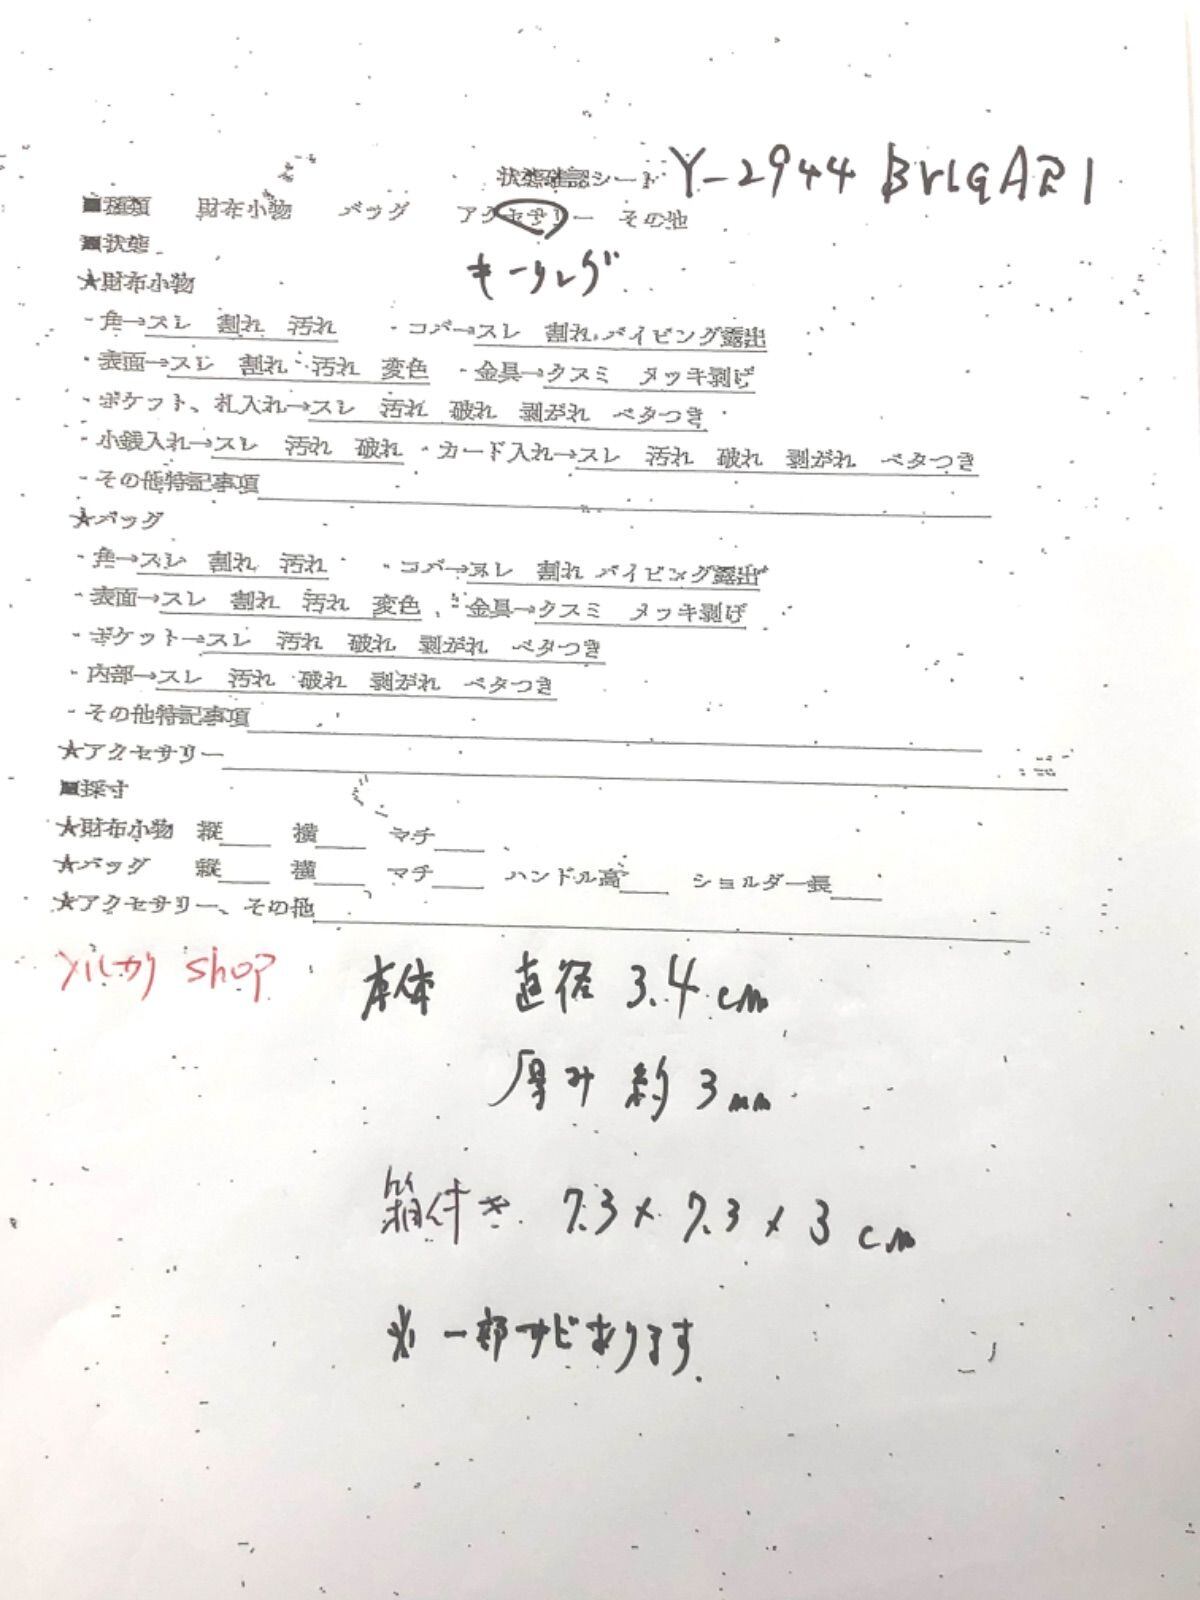 状態確認シート Y-2944 BVLGARI
■種類 財布小物 バッグ アクセサリー その他
■状態 キーリング
★財布小物
・角→スレ 割れ 汚れ ・コバ→スレ 割れ パイピング露出
・表面→スレ 割れ 汚れ 変色 ・金具→クスミ メッキ剥げ
・ポケット、札入れ→スレ 汚れ 破れ 剥がれ ベタつき
・小銭入れ→スレ 汚れ 破れ ・カード入れ→スレ 汚れ 破れ 剥がれ ベタつき
・その他特記事項
★バッグ
・角→スレ 割れ 汚れ ・コバ→スレ 割れ パイピング露出
・表面→スレ 割れ 汚れ 変色 ・金具→クスミ メッキ剥げ
・ポケット→スレ 汚れ 破れ 剥がれ ベタつき
・内部→スレ 汚れ 破れ 剥がれ ベタつき
・その他特記事項
★アクセサリー
■採寸
★財布小物 縦 横 マチ
★バッグ 縦 横 マチ ハンドル高 ショルダー長
★アクセサリー、その他
メルカリ shop 本体 直径 3.4cm
厚み 約 3mm
箱付き 7.3×7.3×3cm
※一部サビあります.